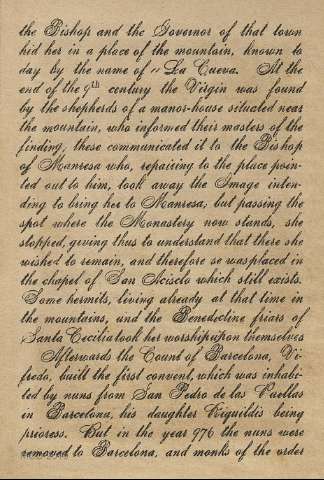 the Bishop and the Governor of that town
hid her in a place of the mountain, known to
day by the name of "La Cueva. At the
end of the 9th century the Virgin was found
by the shepherds of a manor-house situated near
the mountain, who informed their masters of the
finding, these communicated it to the Bishop
of Manresa who, repairing to the place poin-
ted out to him, took away the Image inten-
ding to bring her to Manresa, but passing the
spot where the Monastery now stands, she
stopped, giving thus to understand that there she
wished to remain, and therefore so was placed in
the chapel of San Acisclo which still exists.
Some hermits, living already at that time in
the mountains, und the Benedictine friars of
Santa Cecilia took her worship upon themselves
Afterwards the Count of Barcelona, Vi-
fredo, built the first convent, which was inhabi-
ted by nuns from San Pedro de las Puellas
in Barcelona, his daughter Riquildis being
prioress. But in the year 976 the nuns were
removed to Barcelona, and monks of the order